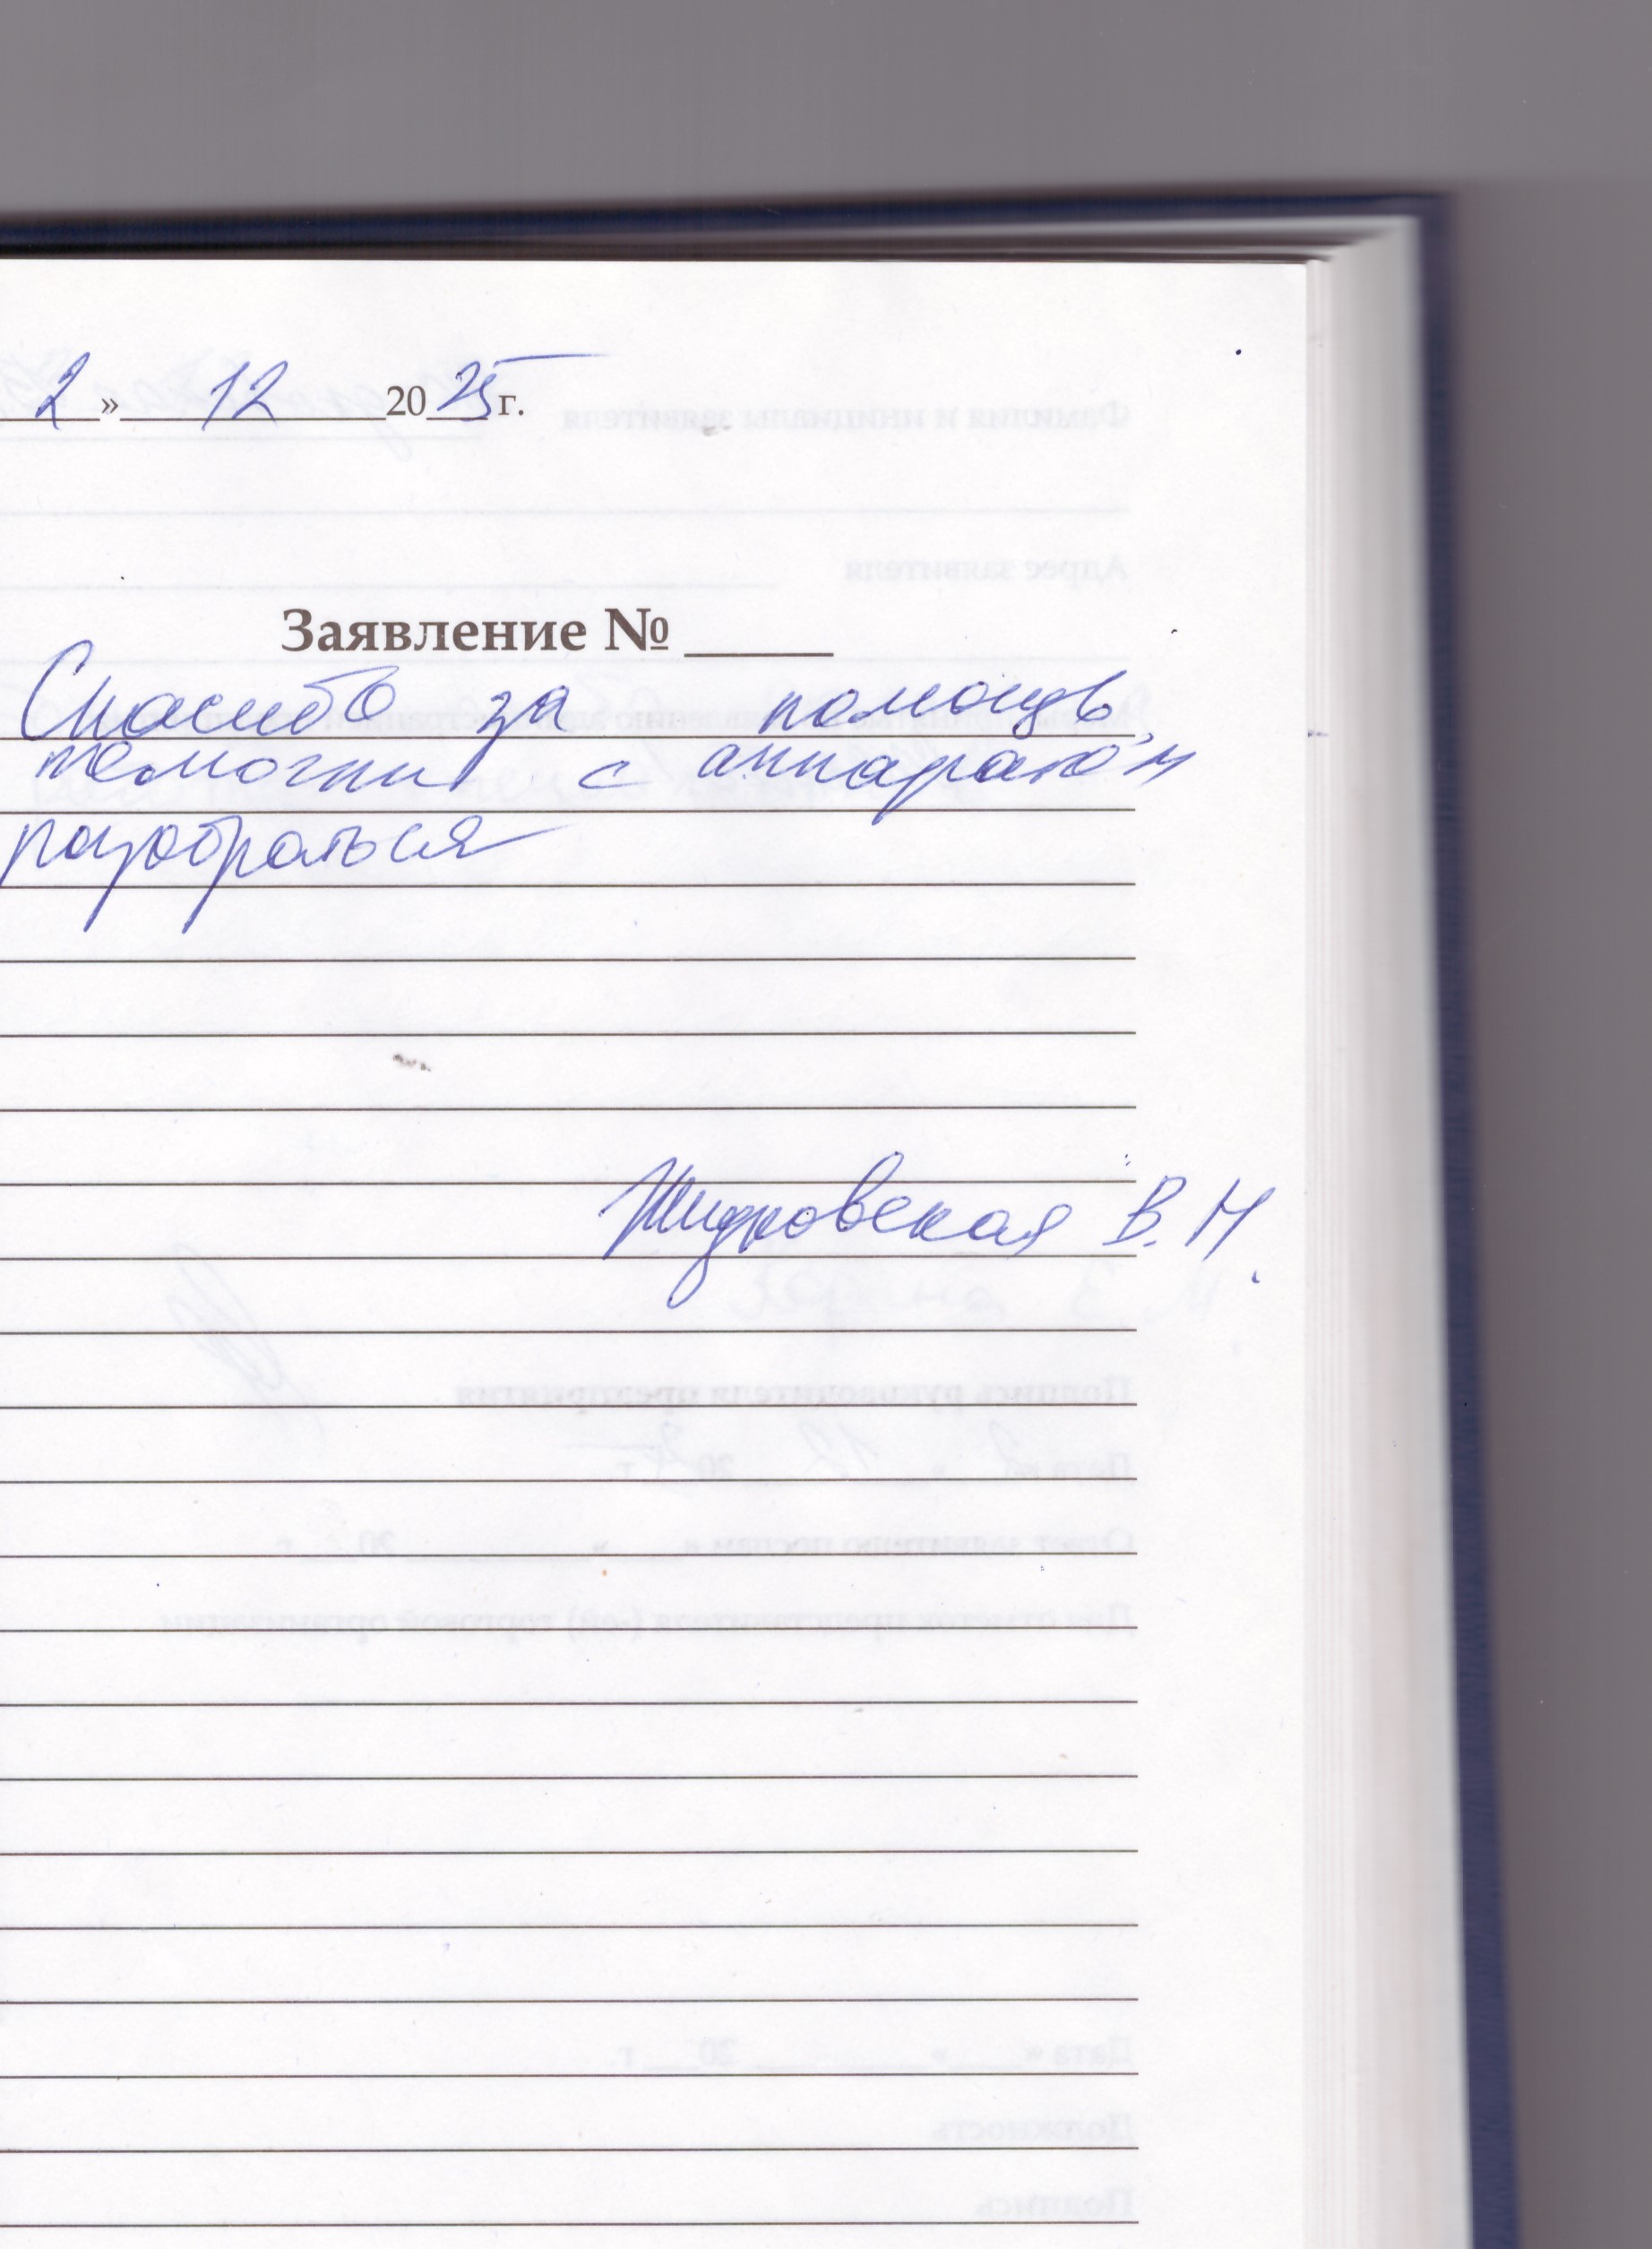 2 » 12 2025 г.
Заявление № _____
Спасибо за помощь,
помогли с аппаратом
разобраться
Жидковская В. Н.